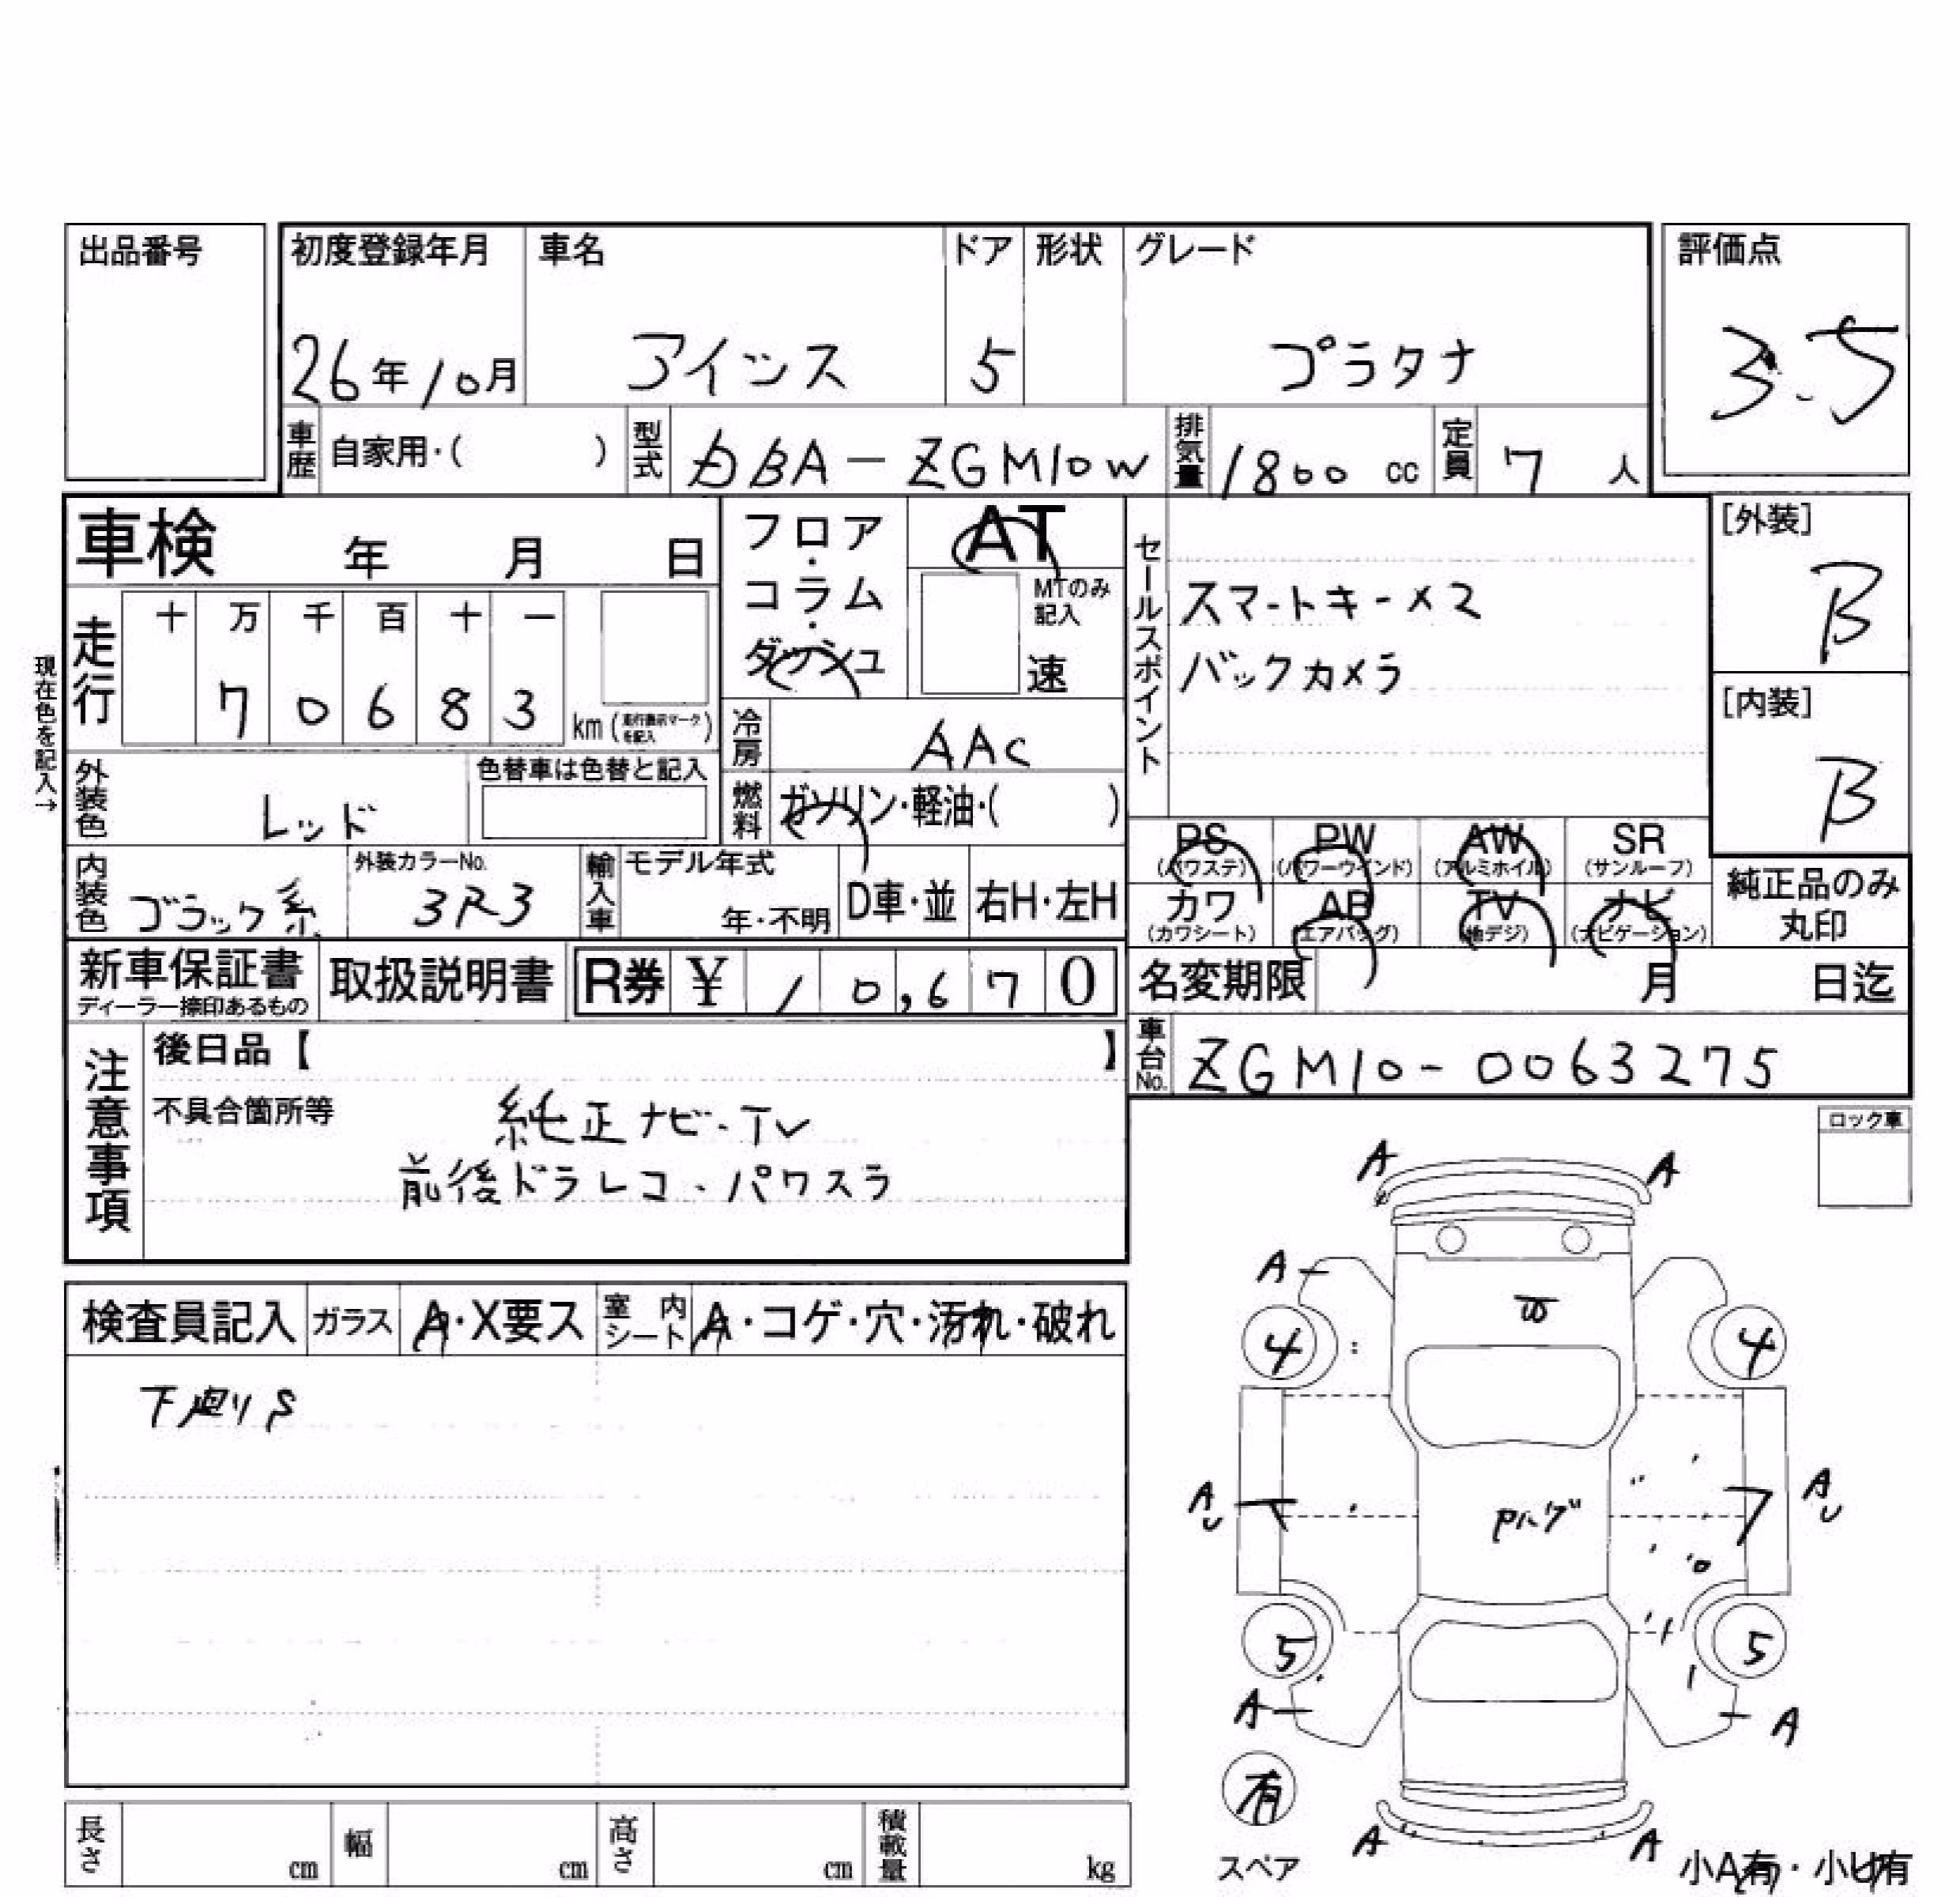 出品番号
初度登録年月 車名 ドア 形状 グレード 評価点
26年10月 アイシス 5 プラタナ 3.5
車歴 自家用・( ) 型式 DBA-ZGM10W 排気量 1800 cc 定員 7 人
車検 年 月 日
フロア・コラム・ダッシュ
AT
MTのみ記入
速
セールスポイント
スマートキー×2
バックカメラ
[外装]
B
[内装]
B
現在色を記入→
走行 十 万 千 百 十 一
7 0 6 8 3 km (走行表示マークを記入)
冷房 AAC
燃料 ガソリン・軽油・( )
外装色 レッド 色替車は色替と記入
内装色 ブラック系 外装カラーNo. 3R3
輸入車 モデル年式 年・不明 D車・並 右H・左H
PS (パワステ) PW (パワーウインド) AW (アルミホイル) SR (サンルーフ)
カワ (カワシート) AB (エアバッグ) TV (地デジ) ナビ (ナビゲーション)
純正品のみ丸印
新車保証書 ディーラー捺印あるもの 取扱説明書 R券 ¥ 10,670
名変期限 月 日迄
車台No. ZGM10-0063275
注意事項
後日品【 】
不具合箇所等 純正ナビ・TV
前後ドラレコ・パワスラ
ロック車
検査員記入 ガラス A・X要ス 室内シート A・コゲ・穴・汚れ・破れ
下廻りS
A A
A
4 4
A U A U
5 5
A A
有
スペア
A A
小A有・小U有
長さ cm 幅 cm 高さ cm 積載量 kg